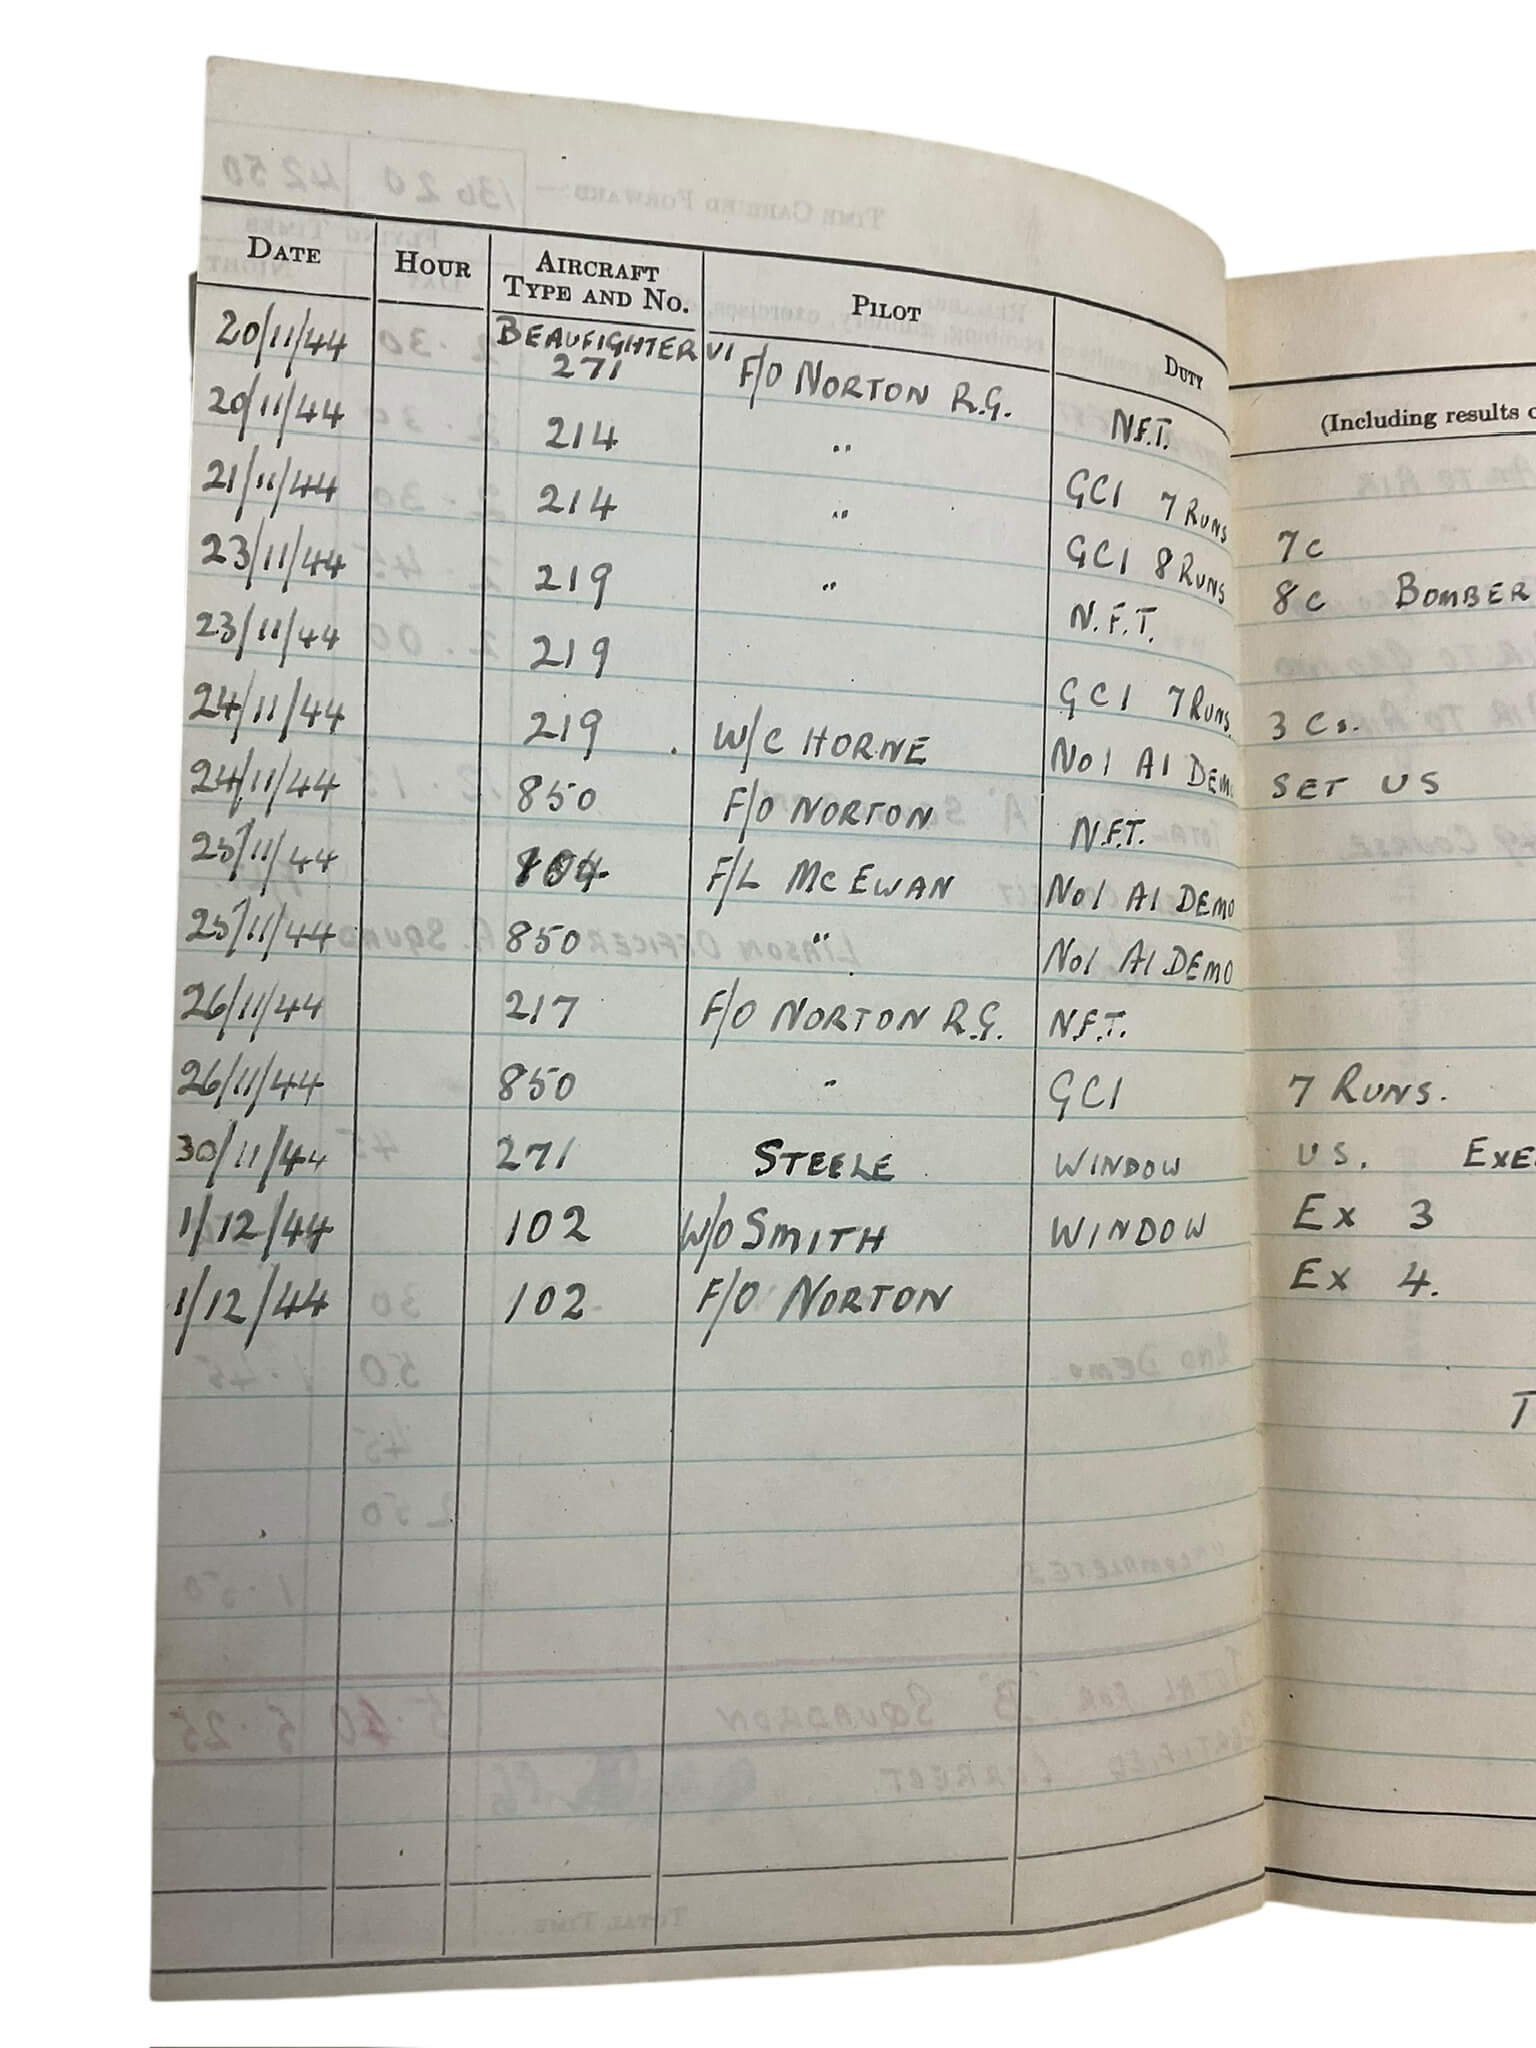 DATE HOUR AIRCRAFT TYPE AND No. PILOT DUTY (Including results o
20/11/44 BEAUFIGHTER VI 271 F/O NORTON R.G. N.F.T.
20/11/44 214 " GCI 7 RUNS 7c
21/11/44 214 " GCI 8 RUNS 8c BOMBER
23/11/44 219 " N.F.T.
23/11/44 219 GCI 7 RUNS 3 Cs.
24/11/44 219 W/C HORNE No1 AI DEMO SET US
24/11/44 850 F/O NORTON N.F.T.
25/11/44 F/L McEWAN No1 AI DEMO
25/11/44 850 " No1 AI DEMO
26/11/44 217 F/O NORTON R.G. N.F.T.
26/11/44 850 " GCI 7 RUNS.
30/11/44 271 STEELE WINDOW US. EXE
1/12/44 102 W/O SMITH WINDOW EX 3
1/12/44 102 F/O NORTON EX 4.
T